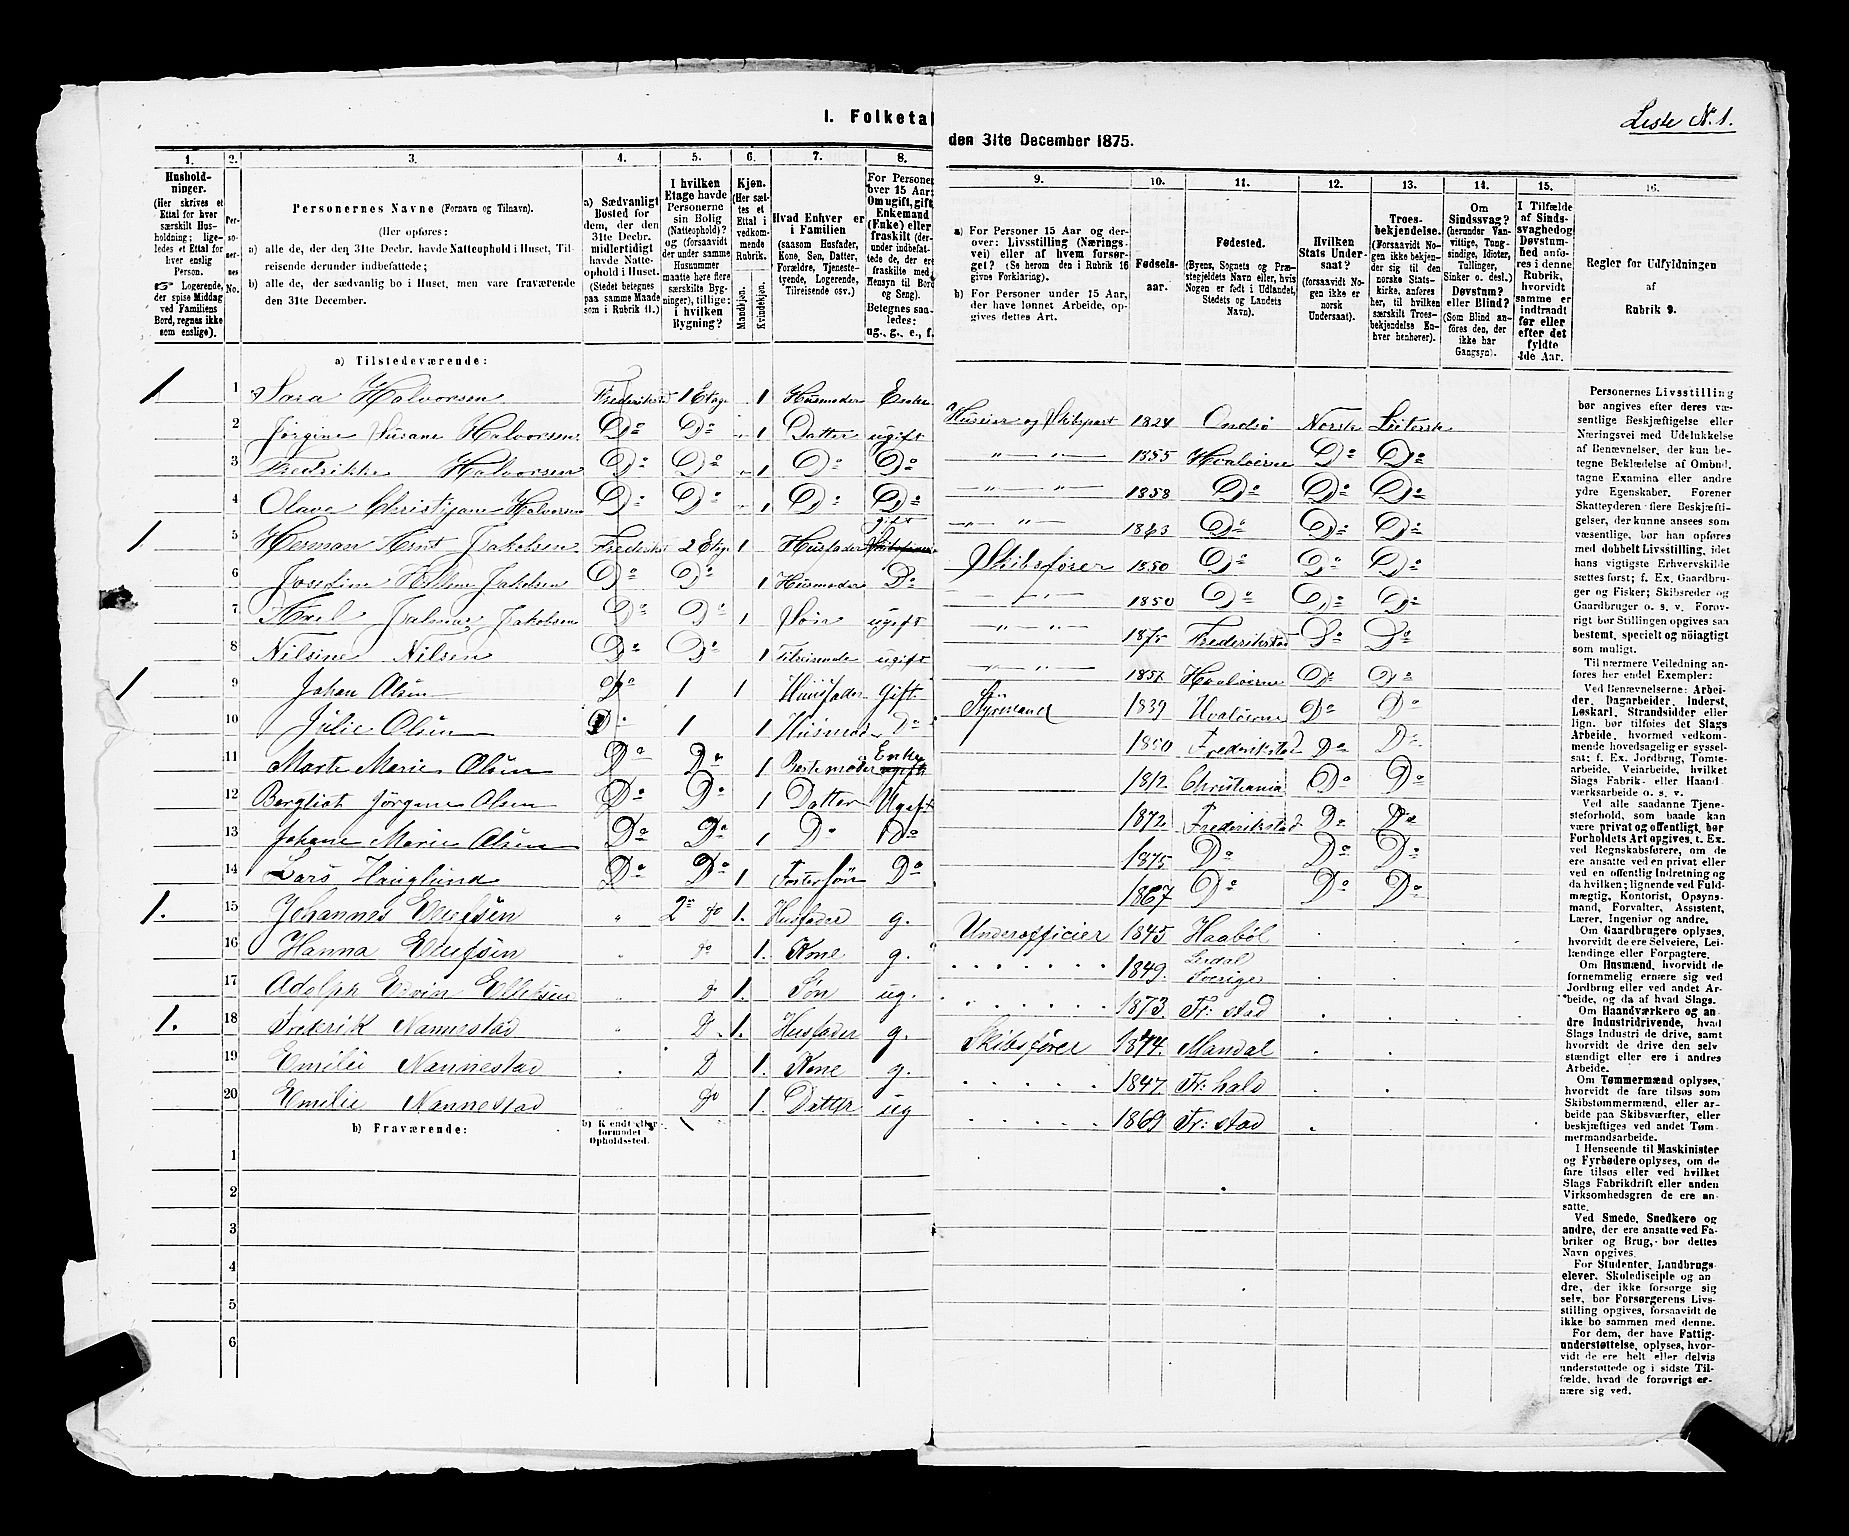 I. Folketal
den 31te December 1875.
Liste No. 1.
1.
Husholdninger.
(Her skrives et
Ettal for hver
særskilt Husholdning; ligeledes
et Ettal for
hver enslig
Person.
☞ Logerende,
der spise Middag
ved Familiens
Bord, regnes ikke
som enslige).
2.
Personernes
No.
3.
Personernes Navne (Fornavn og Tilnavn).
(Her opføres:
a) alle de, der den 31te Decbr. havde Natteophold i Huset, Tilreisende derunder indbefattede;
b) alle de, der sædvanlig bo i Huset, men vare fraværende
den 31te December.
4.
a) Sædvanligt
Bosted for
dem, der den
31te Decbr.
midlertidigt
havde Natteophold i Huset.
(Stedet betegnes
paa samme Maade
som i Rubrik 11.)
5.
I hvilken
Etage havde
Personerne
sin Bolig
(Natteophold)?
og (forsaavidt
der under samme
Husnummer
maatte høre flere
særskilte Bygninger), tillige:
i hvilken
Bygning?
6.
Kjøn.
(Her sættes et
Ettal i
vedkommende
Rubrik.
Mandkjøn.
Kvindekjøn.
7.
Hvad Enhver er
i Familien
(saasom Husfader,
Kone, Søn, Datter,
Forældre, Tjenestetyende, Logerende,
Tilreisende osv.)
8.
For Personer
over 15 Aar:
Om ugift, gift,
Enkemand
(Enke) eller
fraskilt
Betegnes saaledes:
ug., g., e., f.
9.
a) For Personer 15 Aar og derover: Livsstilling (Næringsvei) eller af hvem forsørget? (Se herom den i Rubrik 16
givne Forklaring).
b) For Personer under 15 Aar,
der have lønnet Arbeide, opgives dettes Art.
10.
Fødselsaar.
11.
Fødested.
(Byens, Sognets og Præstegjeldets Navn eller, hvis
Nogen er født i Udlandet,
Stedets og Landets
Navn).
12.
Hvilken
Stats Undersaat?
(forsaavidt Nogen ikke er
norsk
Undersaat).
13.
Troesbekjendelse.
(Forsaavidt Nogen ikke bekjender sig til den
norske Statskirke, anføres
her, til hvilken
særskilt Troesbekjendelse Enhver henhører).
14.
Om
Sindssvag?
(herunder Vanvittige, Tungsindige, Idioter,
Tullinger,
Sinker o. desl.)
Døvstum?
eller Blind?
(Som Blind anføres den, der
ikke har
Gangsyn).
15.
I Tilfælde
af Sindssvaghed og
Døvstumhed anføres i denne
Rubrik,
hvorvidt
samme er
indtraadt
før eller
efter det
fyldte
4de Aar.
16.
Regler for Udfyldningen
af
Rubrik 9.
a) Tilstedeværende:
1 1 Sara Halvorsen Frederiksd 1 Etage 1 Husmoder Enke Husier og Skibspart 1824 Onsø Norsk Lutersk
2 Jørgine Susane Halvorsen Do Do 1 Datter ugift 1855 Hvaløerne Do Do
3 Fredrikke Halvorsen Do Do 1 Do Do 1858 Do Do Do
4 Olava Christiane Halvorsen Do Do 1 Do Do 1863 Do Do Do
1 5 Herman Jakobsen Frederiksd 2 Etage 1 Husfader gift Skibsfører 1850 Do Do Do
6 Josefine Jakobsen Do Do 1 Husmoder Do 1850 Do Do Do
7 Axel Jakobsen Do Do 1 Søn ugift 1875 Frederikstad Do Do
8 Nilsine Nilsen Do Do 1 Tilreisende ugift Hvaløerne Do Do
1 9 Johan Olsen Do 1 1 Husfader Gift Styrmand 1839 Hvaløerne Do Do
10 Julie Olsen Do 1 1 Husmod Do 1850 Frederikstad Do Do
11 Marte Marie Olsen Do Do 1 Bestemoder Enke ugift 1812 Christiania Do Do
12 Bergliot Jørgene Olsen Do Do 1 Datter Ugift 1872 Frederikstad Do Do
13 Johane Marie Olsen Do Do 1 Do Do 1875 Do Do Do
14 Lars Hauglund Do Do 1 Fostersøn Do 1867 Do Do Do
1. 15 Johannes Ellefsen " 2 do 1. Husfader g. Underofficier 1845 Haabøl
16 Hanna Ellefsen do 1. Kone g. 1849. Sverige
17 Adolph Edvin Ellefsen D 1. Søn ug. 1873. Fr: stad
1. 18 Fredrik Nannestad D 1. Husfader g. Skibsfører 1844. Mandal
19 Emilie Nannestad D 1. Kone g. 1847. Fr: hald
20 Emilie Nannestad do 1. Datter ug 1869 Fr: stad
b) Fraværende:
b) Kendt eller
formodet
Opholdssted.
1
2
3
4
5
6
Personernes Livsstilling
bør angives efter deres væsentlige Beskjæftigelse eller
Næringsvei med Udelukkelse
af Benævnelser, der kun betegne Beklædelse af Ombud,
tagne Examina eller andre
ydre Egenskaber. Forener
Skatteyderen flere Beskjæftigelser, der kunne ansees som
væsentlige, bør han opføres
med dobbelt Livsstilling, idet
hans vigtigste Erhvervskilde
sættes først; f. Ex. Gaardbruger og Fisker; Skibsreder og
Gaardbruger o. s. v. Forøvrigt bør Stillingen opgives saa
bestemt, specielt og nöiagtigt
som muligt.
Til nærmere Veiledning anføres her endel Exempler:
Ved Benævnelserne: Arbeider, Dagarbeider, Inderst,
Løskarl, Strandsidder eller
lign. bør tilføies det Slags
Arbeide, hvormed vedkommende hovedsagelig er sysselsat; f. Ex. Jordbrug, Tomtearbeide, Veiarbeide, hvilket
Slags Fabrik- eller Haandværksarbeide o. s. v.
Ved alle saadanne Tjenesteforhold, som baade kan
være privat og offentligt, bør
Forholdets Art opgives, t. Ex.
ved Regnskabsførere, om de
ere ansatte ved en privat eller
ved en offentlig Indretning og
da hvilken; lignende ved Fuldmægtig, Kontorist, Opsynsmand, Forvalter, Assistent,
Lærer, Ingeniør og andre.
Om Gaardbrugere oplyses,
hvorvidt de ere Selveiere, Leilændinge eller Forpagtere.
Om Husmænd, hvorvidt de
fornemmelig ernære sig ved
Jordbrug eller ved andet Arbeide, og da af hvad Slags.
Om Haandværkere og andre Industridrivende, hvad
Slags Industri de drive, samt
hvorvidt de drive den selvstændigt eller ere i andres
Arbeide.
Om Tømmermænd oplyses,
hvorvidt de fare tilsøs som
Skibstømmermænd, eller arbeide paa Skibsværfter, eller
beskjæftiges ved andet Tømmermandsarbeide.
I Henseende til Maskinister
og Fyrbødere oplyses, om de
fare tilsøs eller ved hvilket
Slags Fabrikdrift eller anden
Virksomhedsgren de ere ansatte.
Ved Smede, Snedkere og
andre, der ere ansatte ved Fabriker og Brug, bør dettes
Navn opgives.
For Studenter, Landbrugselever, Skoledisciple og andre, der ikke forsørge sig
selv, bør Forsørgerens Livsstilling opgives, forsaavidt de
ikke bo sammen med denne.
For dem, der have Fattigunderstøttelse, oplyses, hvorvidt de ere helt eller delvis
understøttede og i sidste Tilfælde, hvad de forøvrigt ernære sig ved.